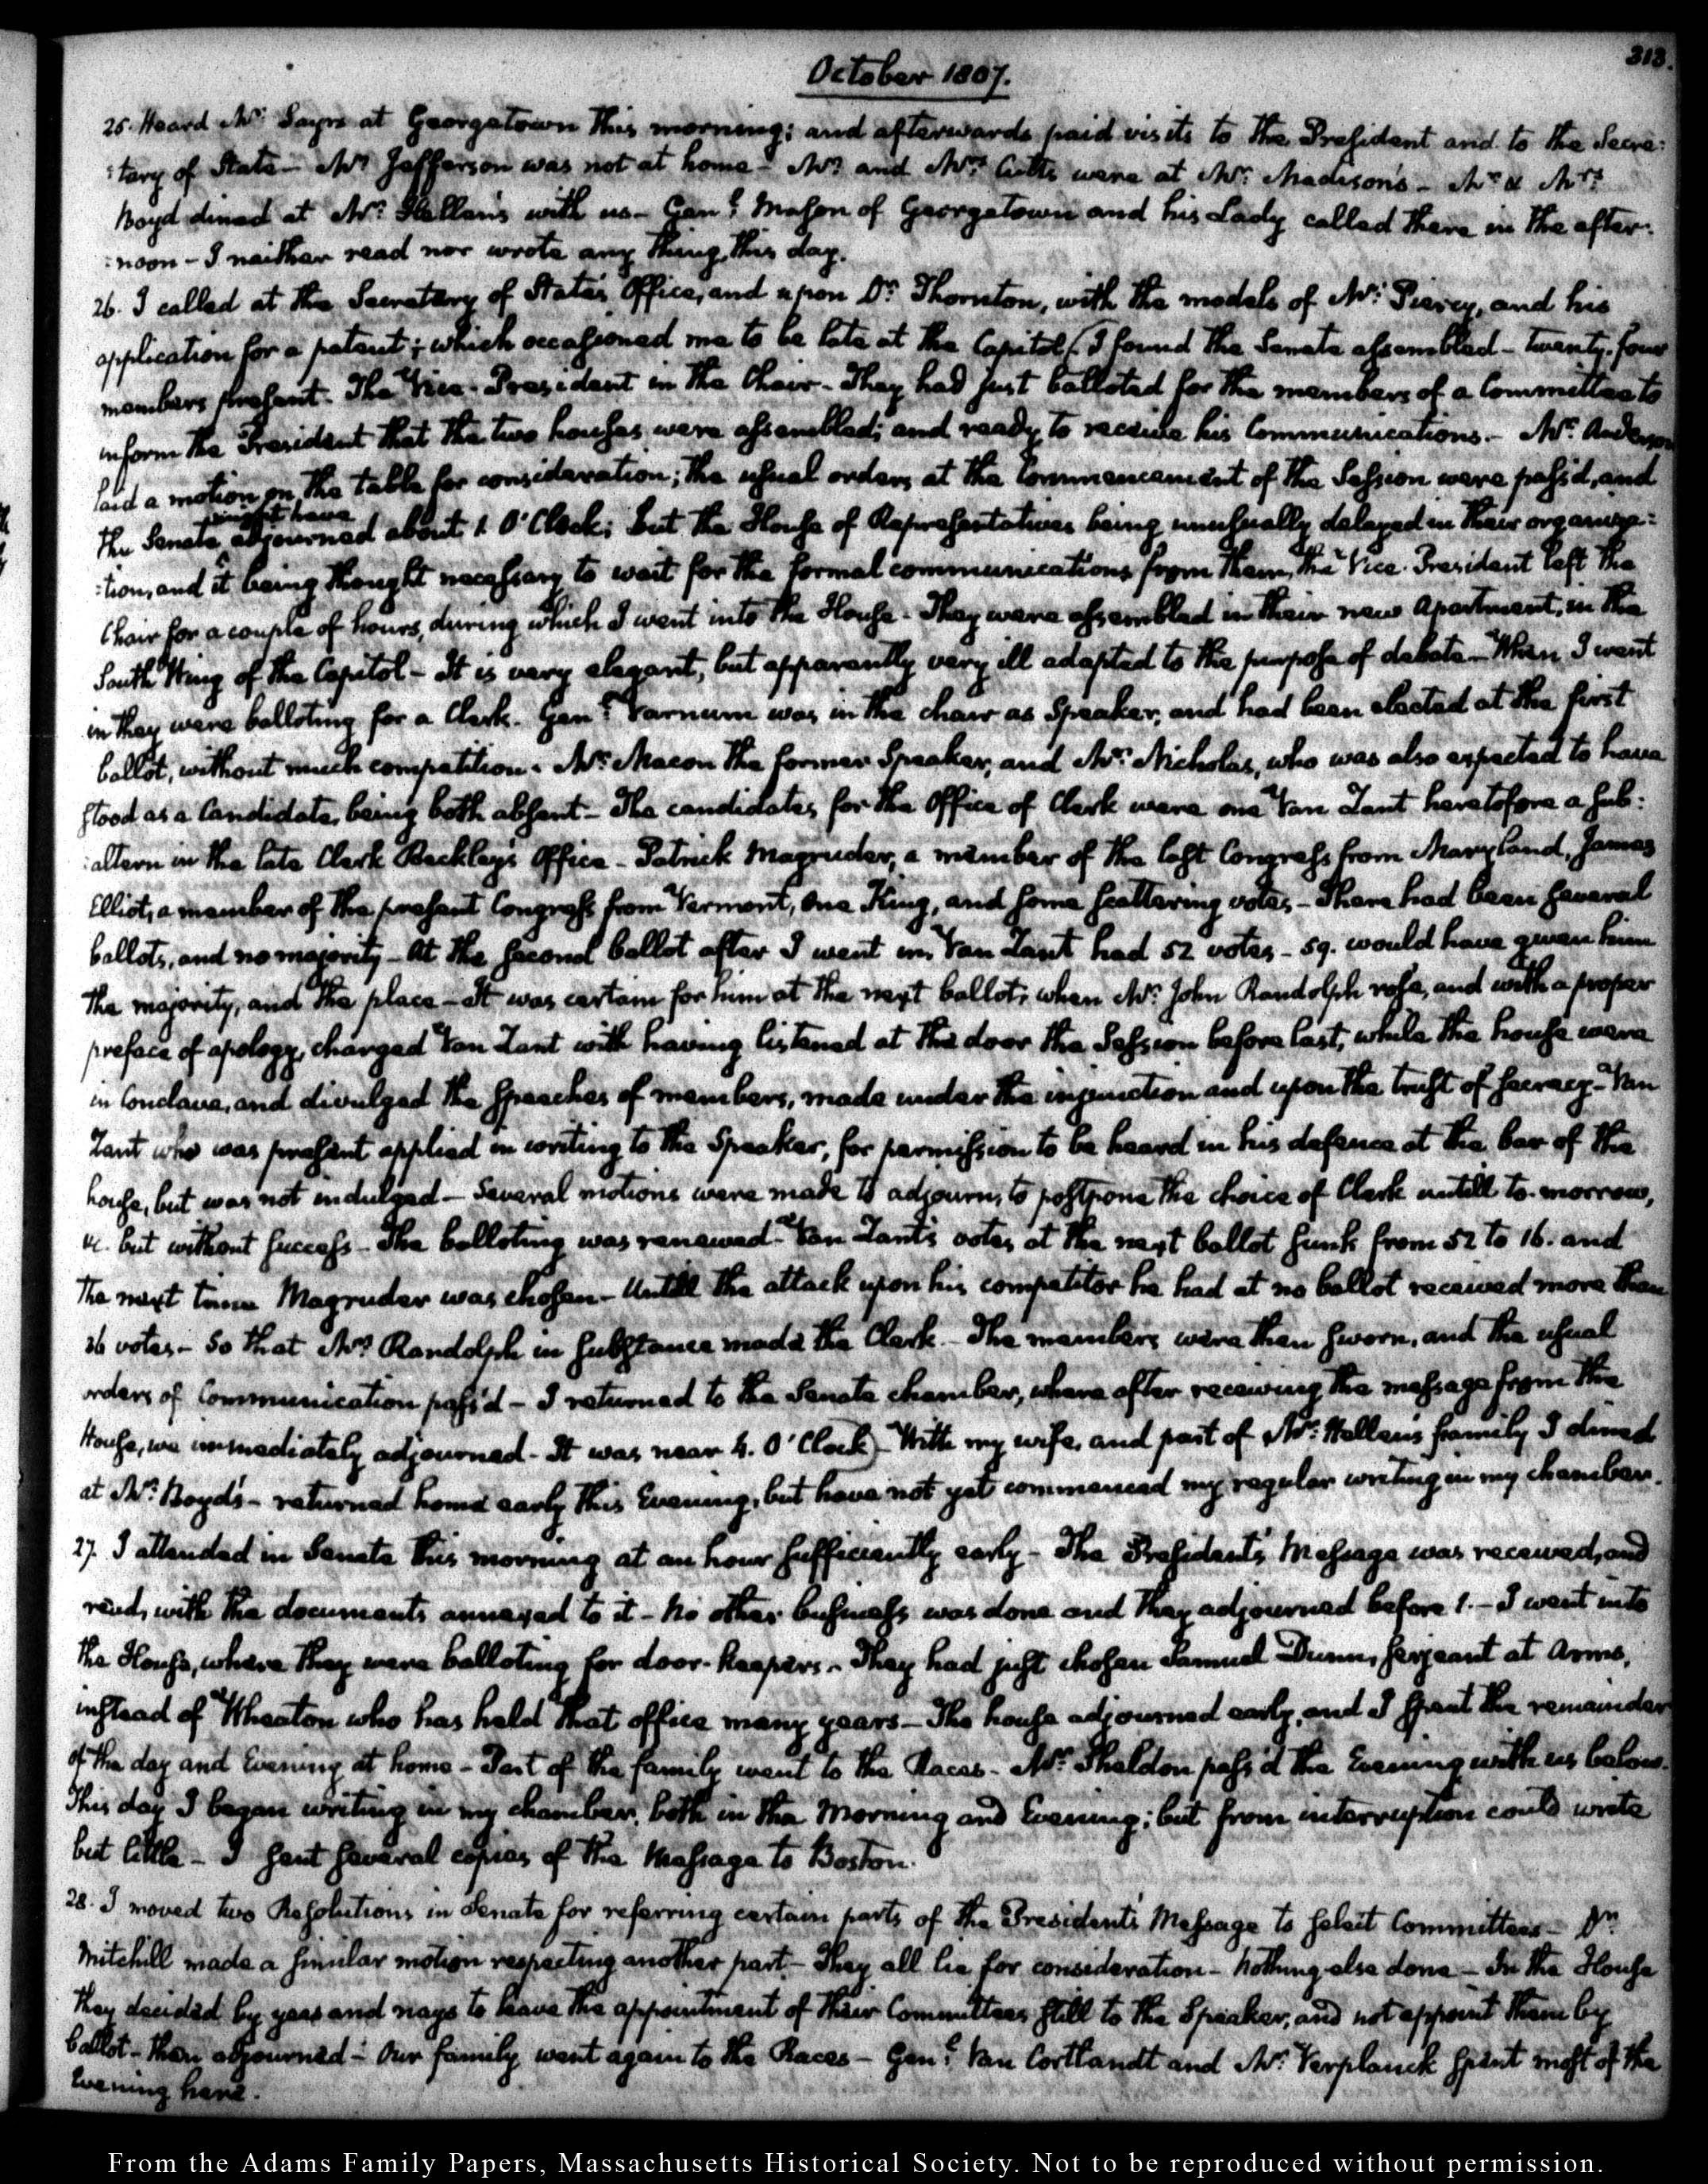 313.
October 1807.
25. Heard Mr. Sayrs at Georgetown this morning; and afterwards paid visits to the President and to the Secre:
:tary of State— Mr. Jefferson was not at home— Mr. and Mrs. Cutts were at Mr. Madison's— Mr. & Mrs.
Boyd dined at Mr. Hellen's with us— Genl. Mason of Georgetown and his Lady called there in the after:
:noon— I neither read nor wrote any thing, this day.
26. I called at the Secretary of State's Office, and upon Dr. Thornton, with the models of Mr. Piercy, and his
application for a patent; which occasioned me to be late at the Capitol. (I found the Senate assembled— twenty-four
members present. The Vice-President in the Chair— They had just balloted for the members of a Committee to
inform the President that the two houses were assembled; and ready to receive his Communications.— Mr. Anderson
laid a motion on the table for consideration; the usual orders at the Commencement of the Session were pass'd, and
the Senate might have adjourned about 1. O'Clock; but the House of Representatives being unusually delayed in their organiza:
:tion, and it being thought necessary to wait for the formal communications from them, the Vice-President left the
Chair for a couple of hours, during which I went into the House— They were assembled in their new Apartment, in the
South Wing of the Capitol— It is very elegant, but apparently very ill adapted to the purpose of debate— When I went
in they were balloting for a Clerk. Genl. Varnum was in the chair as Speaker, and had been elected at the first
ballot, without much competition. Mr. Macon the former Speaker, and Mr. Nicholas, who was also expected to have
stood as a Candidate, being both absent— The candidates for the Office of Clerk were one Van Zant heretofore a sub:
:altern in the late Clerk Beckley's Office— Patrick Magruder, a member of the last Congress from Maryland, James
Elliot, a member of the present Congress from Vermont, One King, and some scattering votes— There had been several
ballots, and no majority— At the second ballot after I went in, Van Zant had 52 votes— 59. would have given him
the majority, and the place— It was certain for him at the next ballot, when Mr. John Randolph rose, and with a proper
preface of apology, charged Van Zant with having listened at the door the Session before last, while the house were
in Conclave, and divulged the speeches of members, made under the injunction and upon the trust of secrecy— Van
Zant who was present applied in writing to the Speaker, for permission to be heard in his defence at the bar of the
house, but was not indulged— Several motions were made to adjourn, to postpone the choice of Clerk untill to-morrow,
&c. but without success— The balloting was renewed— Van Zant's votes at the next ballot sunk from 52 to 16. and
the next time Magruder was chosen— Untill the attack upon his competitor he had at no ballot received more than
26 votes— So that Mr. Randolph in substance made the Clerk— The members were then sworn, and the usual
orders of Communication pass'd— I returned to the Senate chamber, where after receiving the message from the
House, we immediately adjourned— It was near 4. O'Clock)— With my wife, and part of Mr. Hellen's family I dined
at Mr. Boyd's— returned home early this Evening, but have not yet commenced my regular writing in my chamber.
27. I attended in Senate this morning at an hour sufficiently early— The President's Message was received, and
read, with the documents annexed to it— No other business was done and they adjourned before 1.— I went into
the House, where they were balloting for door-keepers.— They had just chosen Samuel Dunn, serjeant at Arms,
instead of Wheaton who has held that office many years— The house adjourned early, and I spent the remainder
of the day and Evening at home— Part of the family went to the Races— Mr. Sheldon pass'd the Evening with us below.
This day I began writing in my chamber, both in the Morning and Evening; but from interruption could write
but little— I sent several copies of the Message to Boston.
28. I moved two Resolutions in Senate for referring certain parts of the President's Message to select Committees— Dr.
Mitchill made a similar motion respecting another part— They all lie for consideration— Nothing else done— In the House
they decided by yeas and nays to leave the appointment of their Committees still to the Speaker, and not appoint them by
ballot— then adjourned— Our family went again to the Races— Genl. Van Cortlandt and Mr. Verplanck spent most of the
Evening here.
From the Adams Family Papers, Massachusetts Historical Society. Not to be reproduced without permission.